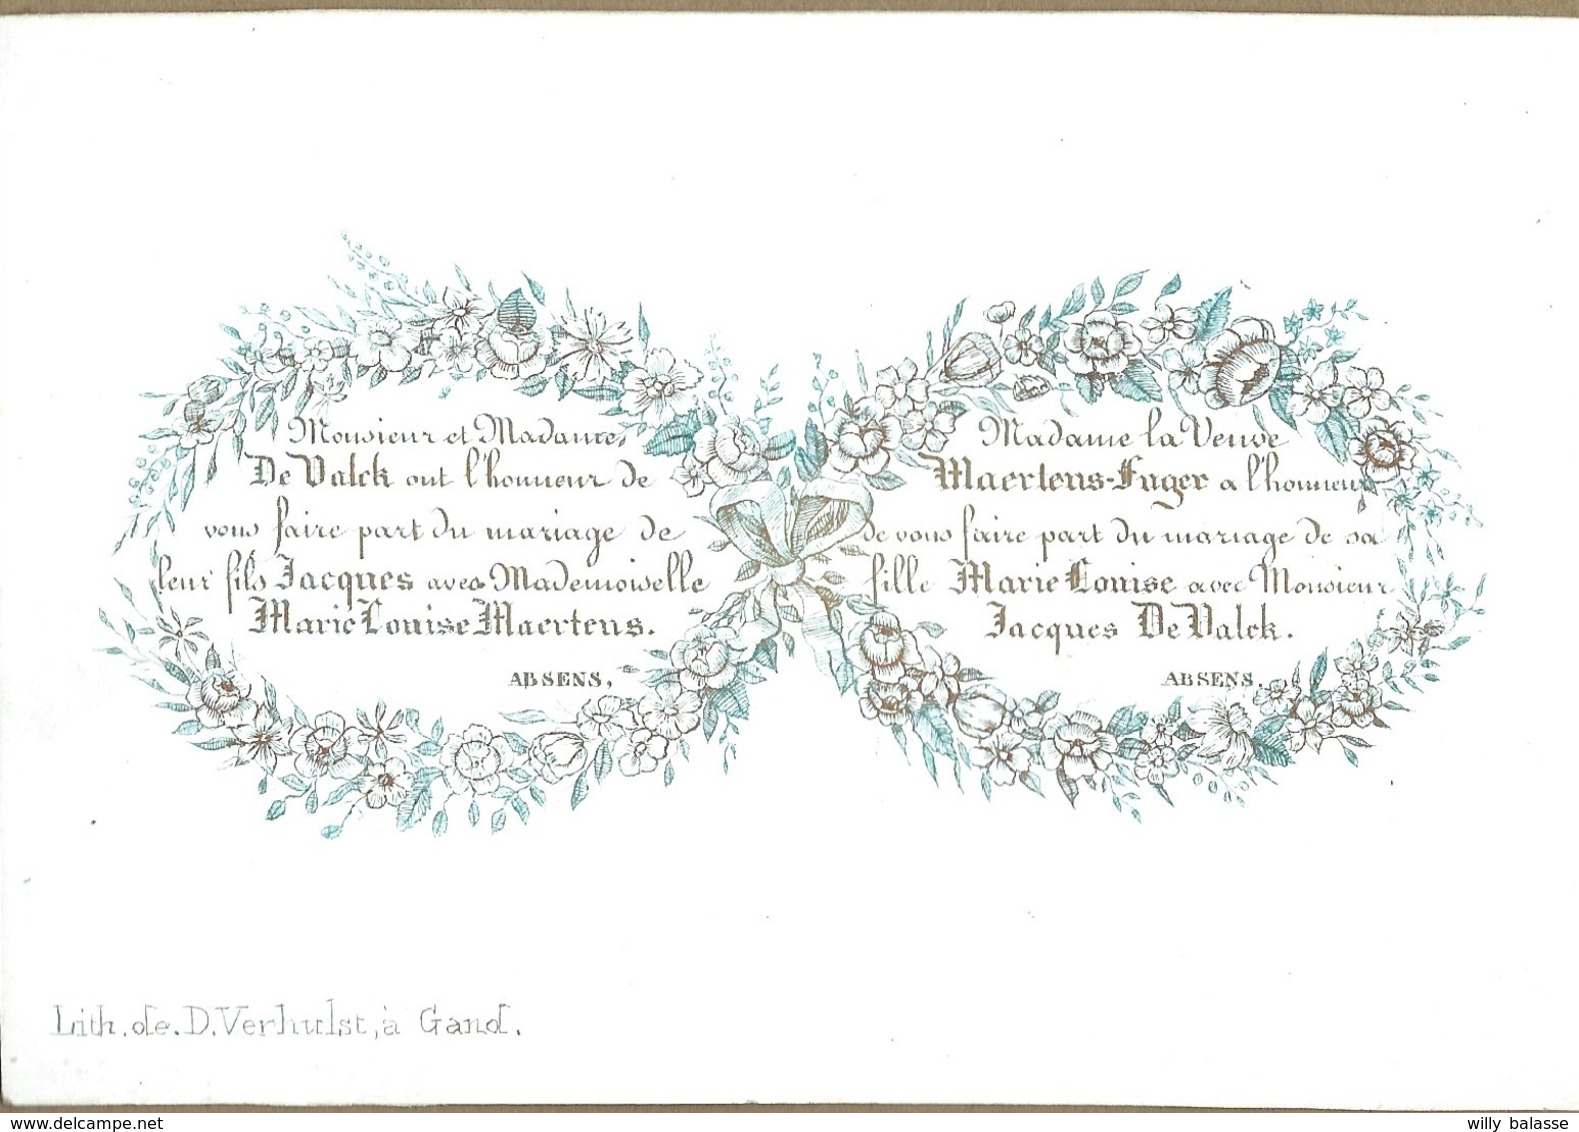 Monsieur et Madame
De Valck ont l'honneur de
vous faire part du mariage de
leur fils Jacques avec Mademoiselle
Marie Louise Maertens.
ABSENS,
Madame la Veuve
Maertens-Fuger a l'honneur
de vous faire part du mariage de sa
fille Marie Louise avec Monsieur
Jacques De Valck.
ABSENS.
Lith. de. D. Verhulst, à Gand.
www.delcampe.net
willy balasse